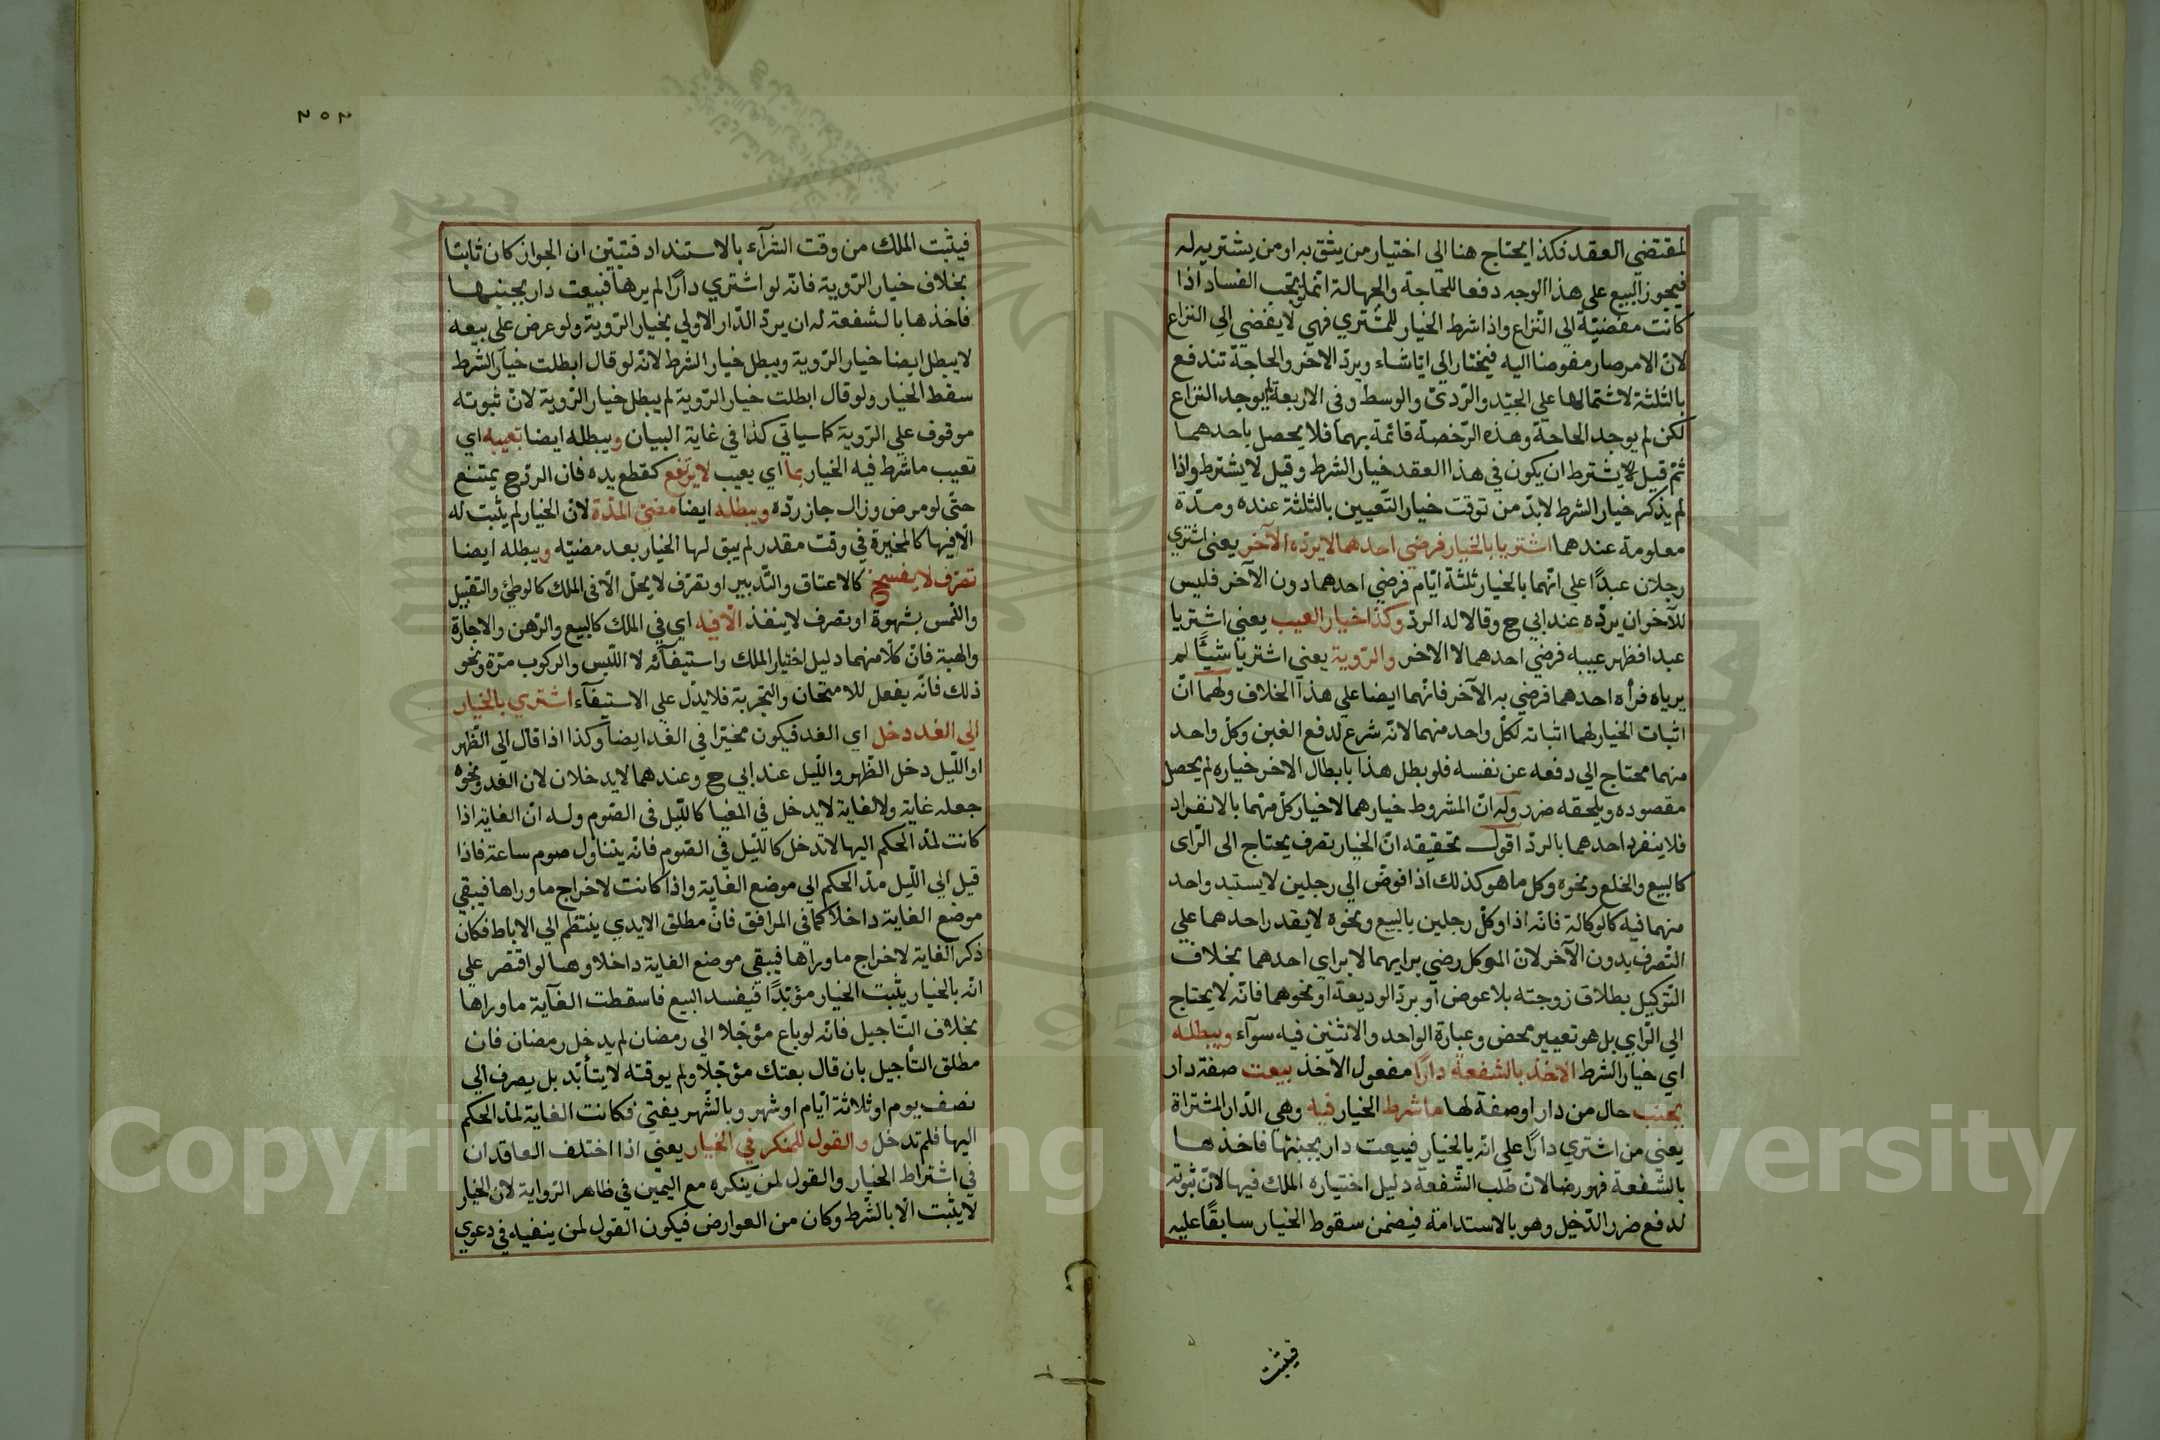 لمقتضي العقد فكذا يحتاج هنا الي اختيار من يثق به او من يشتريه له
فيجوز البيع علي هذا الوجه دفعا للحاجة والجهالة انما توجب الفساد اذا
كانت مفضيّة الي النّزاع واذا شرط الخيار للمشتري فهي لا يفضي الي النزاع
لانّ الامر صار مفوضا اليه فيختار الي ايّا شاء ويردّ الاخر والحاجة تندفع
بالثلثة لاشتمالها علي الجيّد والرّديّ والوسط وفي الاربعة لم يوجد النزاع
لكن لم يوجد الحاجة وهذه الرّخصة قائمة بهما فلا يحصل باحدهما
ثمّ قيل يشترط ان يكون في هذا العقد خيار الشرط وقيل لا يشترط واذا
لم يذكر خيار الشرط لابدّ من توقيت خيار التّعيين بالثلثة عنده ومدّة
معلومة عندهما اشتريا بالخيار فرضي احدهما لا يردّه الآخر يعني اشتري
رجلان عبدًا علي انّهما بالخيار ثلثة ايّام فرضي احدهما دون الآخر فليس
للآخر ان يردّه عند ابي ح وقالا له الردّ وكذا خيار العيب يعني اشتريا
عبدا فظهر عيبه فرضي احدهما لا الاخر والرّوية يعني اشتريا شيئًا لم
يرياه فرأه احدهما فرضي به الآخر فانّهما ايضا علي هذا الخلاف ولهما انّ
اثبات الخيار لهما اثباته لكلّ واحد منهما لانّه شرع لدفع الغبن وكلّ واحد
منهما محتاج الي دفعه عن نفسه فلو بطل هذا بابطال الاخر خياره لم يحصل
مقصوده ويلحقه ضرر وله انّ المشروط خيارهما لا خيار كلّ منهما بالانفراد
فلا ينفرد احدهما بالردّ اقول تحقيقه انّ الخيار تصرف يحتاج الي الرّاى
كالبيع والخلع ونحوه وكل ما هو كذلك اذا فوضّ الي رجلين لا يستبد واحد
منهما فيه كالوكالة فانّه اذا وكلّ رجلين بالبيع ونحوه لا يقدر احدهما علي
التّصرف بدون الآخر لانّ الموكل رضي برايهما لا براي احدهما بخلاف
التّوكيل بطلاق زوجته بلا عوض او بردّ الوديعة او نحوهما فانّه لا يحتاج
الي الرّاي بل هو تعيير محض وعبارة الواحد والاثنين فيه سوآء ويبطله
اي خيار الشرط الاخذ بالشفعة دارًا مفعول الاخذ بيعت صفة دار
بجنب حال من دار او صفة لها ما شرط الخيار فيه وهي الدّار المشتراة
يعني من اشتري دارًا علي انّه بالخيار فبيعت دار بجنبها فاخذها
بالشّفعة فهو رضا لانّ طلب الشّفعة دليل اختياره الملك فيها لانّ ثبوته
لدفع ضرر الدّخيل وهو بالاستدامة فيضمن سقوط الخيار سابقًا عليه
فيثبت
٢٥٢
فيثبت الملك من وقت الشرآء بالاستناد فتبيّن ان الجواز كان ثابتا
بخلاف خيار الرّوية فانّه لو اشتري دارًا لم يرها فبيعت دار بجنبها
فاخذها بالشفعة له ان يردّ الدّار الاولي بخيار الرّوية ولو عرض علي بيعه
لا يبطل ايضا خيار الرّوية ويبطل خيار الشرط لانّه لو قال ابطلت خيار الشرط
سقط الخيار ولو قال ابطلت خيار الرّوية لم يبطل خيار الرّوية لانّ ثبوته
موقوف علي الرّوية كما سياتي كذا في غاية البيان ويبطله ايضا تعيبه اي
تعيب ما شرط فيه الخيار بما اي بعيب لا يرتفع كقطع يده فان الردّ ح يمتنع
حتّي لو مرض وزال جاز ردّه ويبطله ايضا مضيّ المدّة لانّ الخيار لم يثبت له
الّا فيها كالمخيرة في وقت مقدر لم يبق لها الخيار بعد مضيّه ويبطله ايضا
تصرّف لا يفسخ كالاعتاق والتّدبير او تصّرف لا يحلّ الّا في الملك كالوطئ والتقبيل
واللّمس بشهوة او تصرف لا ينفذ الّا فيه اي في الملك كالبيع والرّهن والاجارة
والهبة فانّ كلّا منهما دليل اختيار الملك واستيفآئه لا اللّبس والركوب مرّة ونحو
ذلك فانّه يفعل للامتحان والتجربة فلا يدّل علي الاستيفآء اشتري بالخيار
الي الغد دخل اي الغد فيكون مخيّرا في الغد ايضاً وكذا اذا قال الي الظّهر
او اللّيل دخل الظّهر واللّيل عند ابي ح وعندهما لا يدخلان لان الغد ونحوه
جعله غاية والغاية لا يدخل في المغيا كاللّيل في الصّوم وله انّ الغاية اذا
كانت لمدّ الحكم اليها لا تدخل كاللّيل في الصّوم فانّه يتناول صوم ساعة فاذا
قيل الي اللّيل مدّ الحكم الي موضع الغاية واذا كانت لاخراج ما وراها فيبقي
موضع الغاية داخلا كما في المرافق فانّ مطلق الايدي ينتظم الي الاباط فكان
ذكر الغاية لاخراج ما وراها فيبقي موضع الغاية داخلا وهنا لو اقتصر علي
انّه بالخيار يثبت الخيار مؤبّدًا فيفسد البيع فاسقطت الغآية ما وراها
بخلاف التّاجيل فانّه لو باع مؤجّلا الي رمضان لم يدخل رمضان فان
مطلق التأجيل بان قال بعتك مؤجّلا ولم يوقته لا يتأبّد بل يصرف الي
نصف يوم او ثلاثة ايّام او شهر وبالشّهر يفتي فكانت الغاية لمدّ الحكم
اليها فلم تدخل والقول للمنكر في الخيار يعني اذا اختلف العاقدان
في اشتراط الخيار والقول لمن ينكره مع اليمين في ظاهر الرّواية لان الخيار
لا يثبت الّا بالشّرط وكان من العوارض فيكون القول لمن ينفيه في دعوي
Copyright © King Saud University
1957